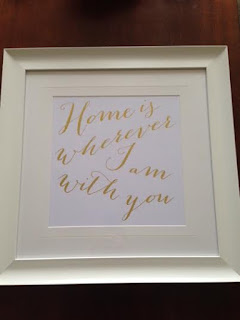 Home is
wherever
I am
with you